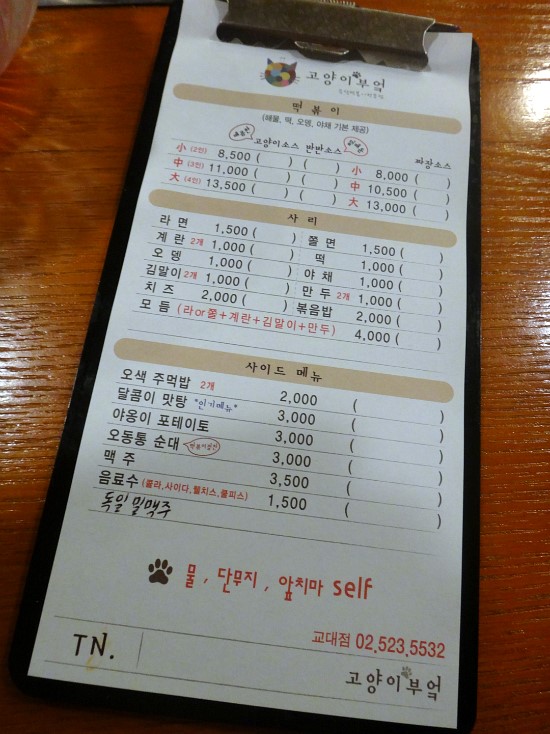 고양이부엌
떡볶이
(해물, 떡, 오뎅, 야채 기본 제공)
고양이소스 반반소스 짜장소스
小 (2인) 8,500 ( ) ( ) 小 8,000 ( )
中 (3인) 11,000 ( ) ( ) 中 10,500 ( )
大 (4인) 13,500 ( ) ( ) 大 13,000 ( )
사리
라면 1,500 ( ) 쫄면 1,500 ( )
계란 2개 1,000 ( ) 떡 1,000 ( )
오뎅 1,000 ( ) 야채 1,000 ( )
김말이 2개 1,000 ( ) 만두 2개 1,000 ( )
치즈 2,000 ( ) 볶음밥 2,000 ( )
모듬 (라or쫄+계란+김말이+만두) 4,000 ( )
사이드 메뉴
오색 주먹밥 2개 2,000 (
달콤이 맛탕 *인기메뉴* 3,000 (
야옹이 포테이토 3,000 (
오동통 순대 3,000 (
맥주 3,500 (
음료수 (콜라,사이다,웰치스,쿨피스) 1,500 (
독일 밀맥주
물, 단무지, 앞치마 self
교대점 02.523.5532
TN.
고양이부엌